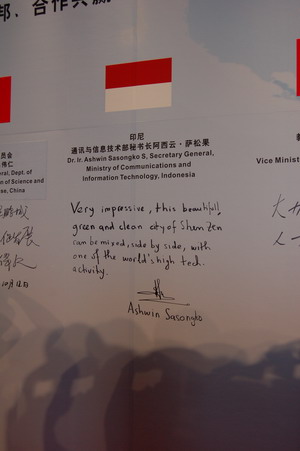 邦、合作共赢
印尼
通讯与信息技术部秘书长阿西云·萨松果
Dr. Ir. Ashwin Sasongko S, Secretary General,
Ministry of Communications and
Information Technology, Indonesia
Very impressive, this beautiful,
green and clean city of Shen Zen
can be mixed, side by side, with
one of the world's high tech.
activity.
Ashwin Sasongko
员会
伟仁
eral, Dept. of
n of Science and
se, China
Vice Minist